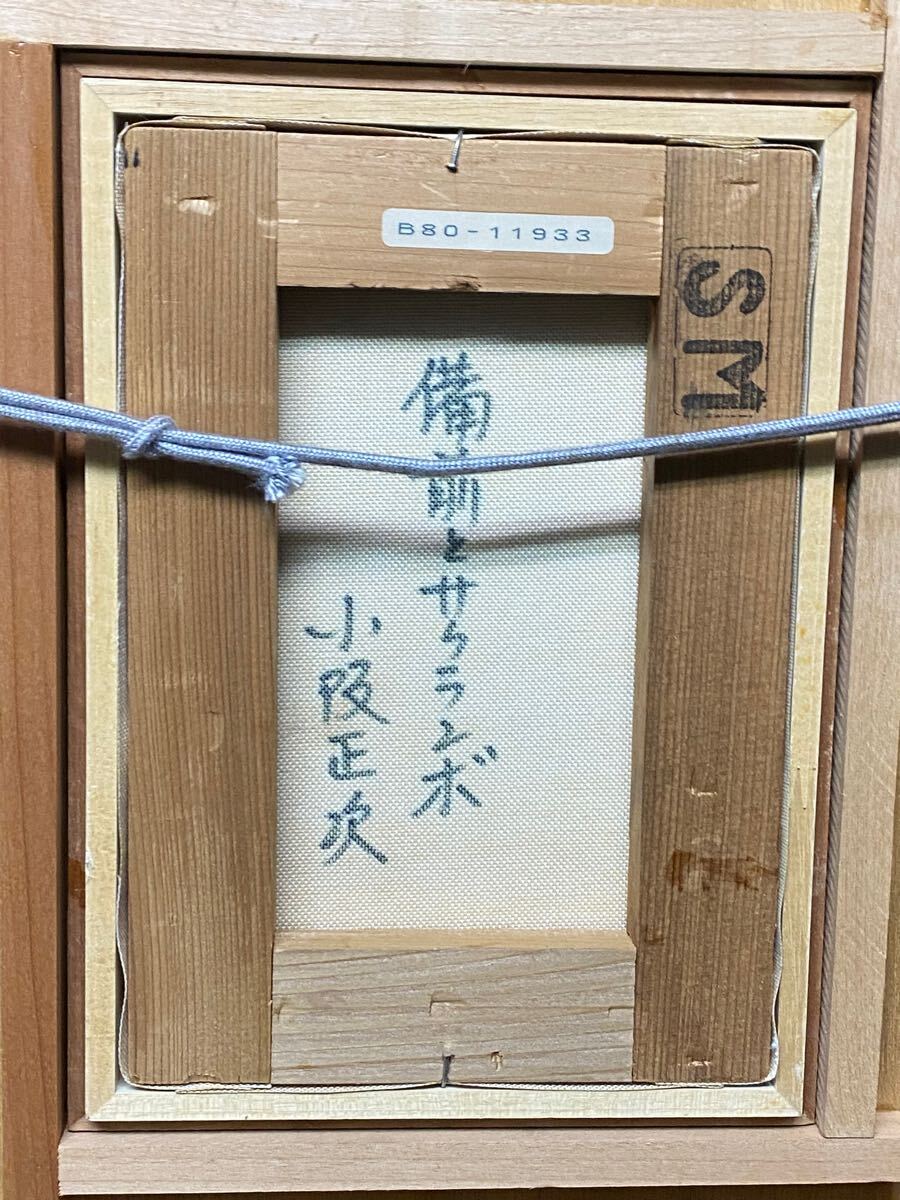 B80-11933
SM
備前とサクランボ
小阪正次